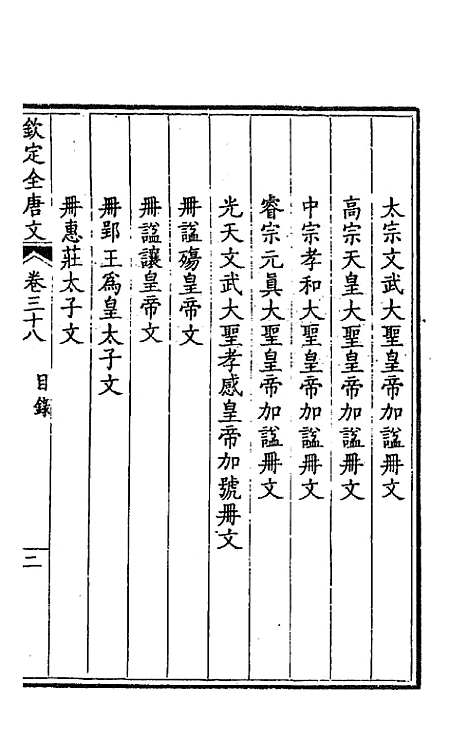 太宗文武大聖皇帝加諡冊文
高宗天皇大聖皇帝加諡冊文
中宗孝和大聖皇帝加諡冊文
睿宗元眞大聖皇帝加諡冊文
光天文武大聖孝感皇帝加號冊文
冊諡殤皇帝文
冊諡讓皇帝文
冊郢王爲皇太子文
冊惠莊太子文
欽定全唐文 卷三十八 目錄 二